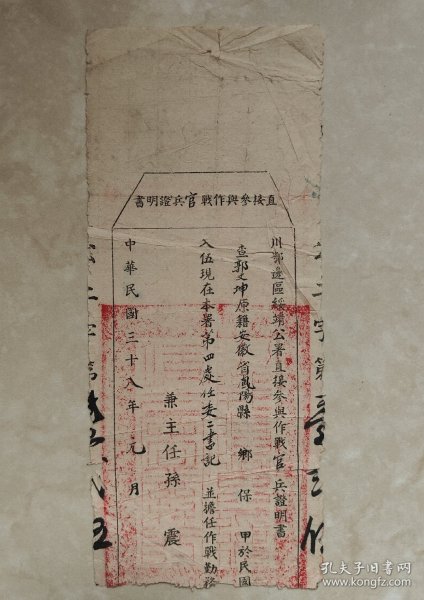 直接參與作戰官兵證明書
川鄂邊區綏靖公署直接參與作戰官兵證明書
查郭文坤原籍安徽省鳳陽縣 鄉 保 甲於民國
入伍現在本署第四處任委二書記 並擔任作戰勤務
兼主任孫 震
中華民國三十八年 元月
字第
字第
孔夫子旧书网
www.kongfz.com